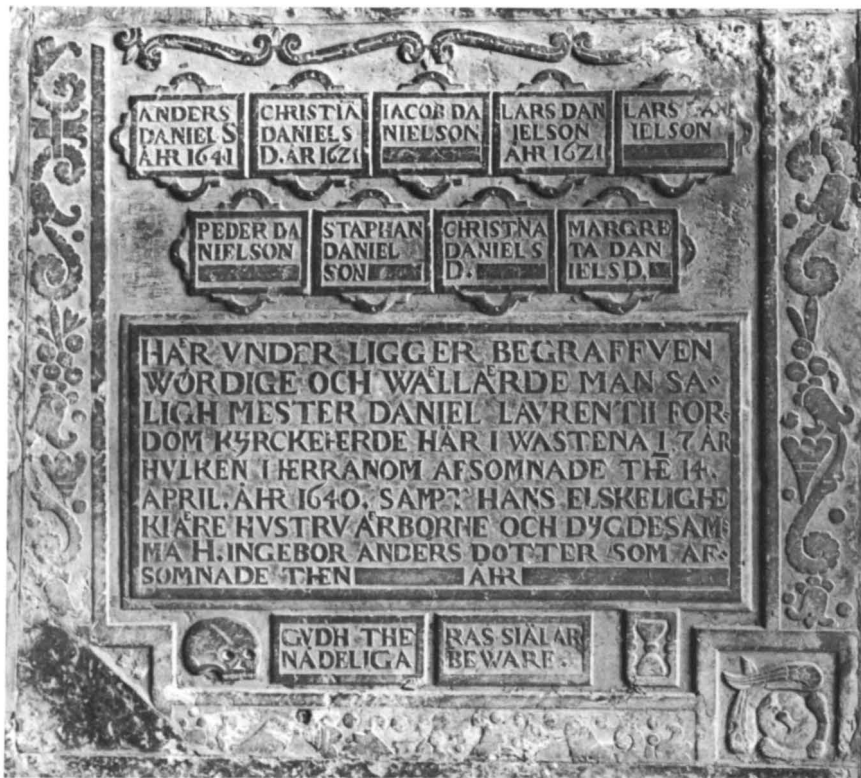 ANDERS
DANIELS
ÅHR 1641
CHRISTIÃ
DANIELS
D. ÅR 1621
IACOB DA
NIELSON
LARS DAN
IELSON
ÅHR 1621
LARS DAN
IELSON
PEDER DA
NIELSON
STAPHAN
DANIEL
SON
CHRISTNA
DANIELS
D.
MARGRE
TA DAN
IELS D.
HAᴱR VNDER LIGGER BEGRAFFVEN
WÖRDIGE OCH WAᴱLLAᴱRDE MAN SA=
LIGH MESTER DANIEL LAVRENTII FOR=
DOM KYRCKEHERDE HÄR I WASTENA 17 ÅR
HVLKEN I HERRANOM AFSOMNADE THẼ 14.
APRIL. ÅHR 1640. SAMPT HANS ELSKELIGHE
KIAᴱRE HVSTRV AᴱRBORNE OCH DYGDESAM=
MA H. INGEBOR ANDERS DOTTER SOM AF=
SOMNADE THEN AHR
GVDH THE
NÅDELIGA
RAS SIÄLAR
BEWARE.